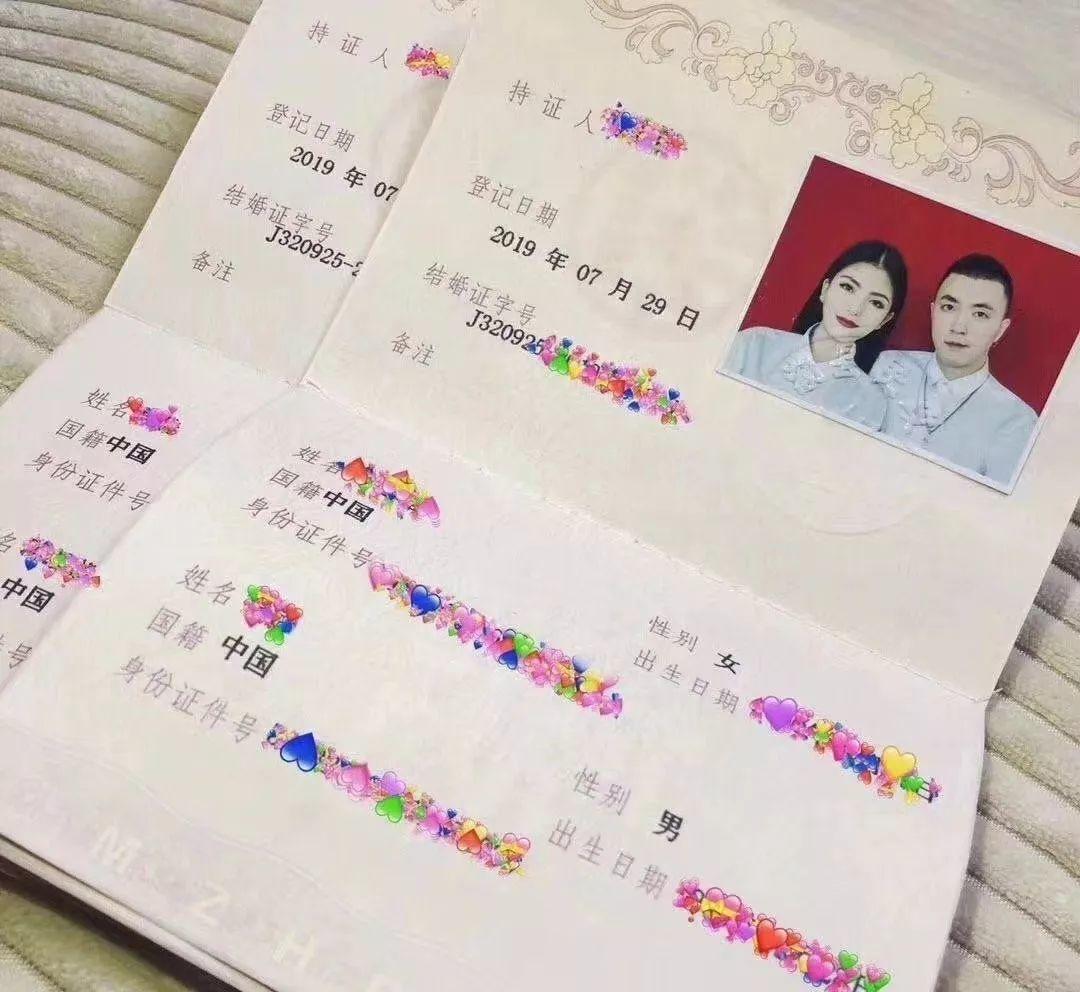 持证人
登记日期
2019 年 07
结婚证字号
J320925-2
备注
姓名
国籍 中国
身份证件号
名
中国
号
持证人
登记日期
2019 年 07 月 29 日
结婚证字号
J320925
备注
姓名
国籍 中国
身份证件号
性别 女
出生日期
日
姓名
国籍 中国
身份证件号
性别 男
出生日期
M Z H